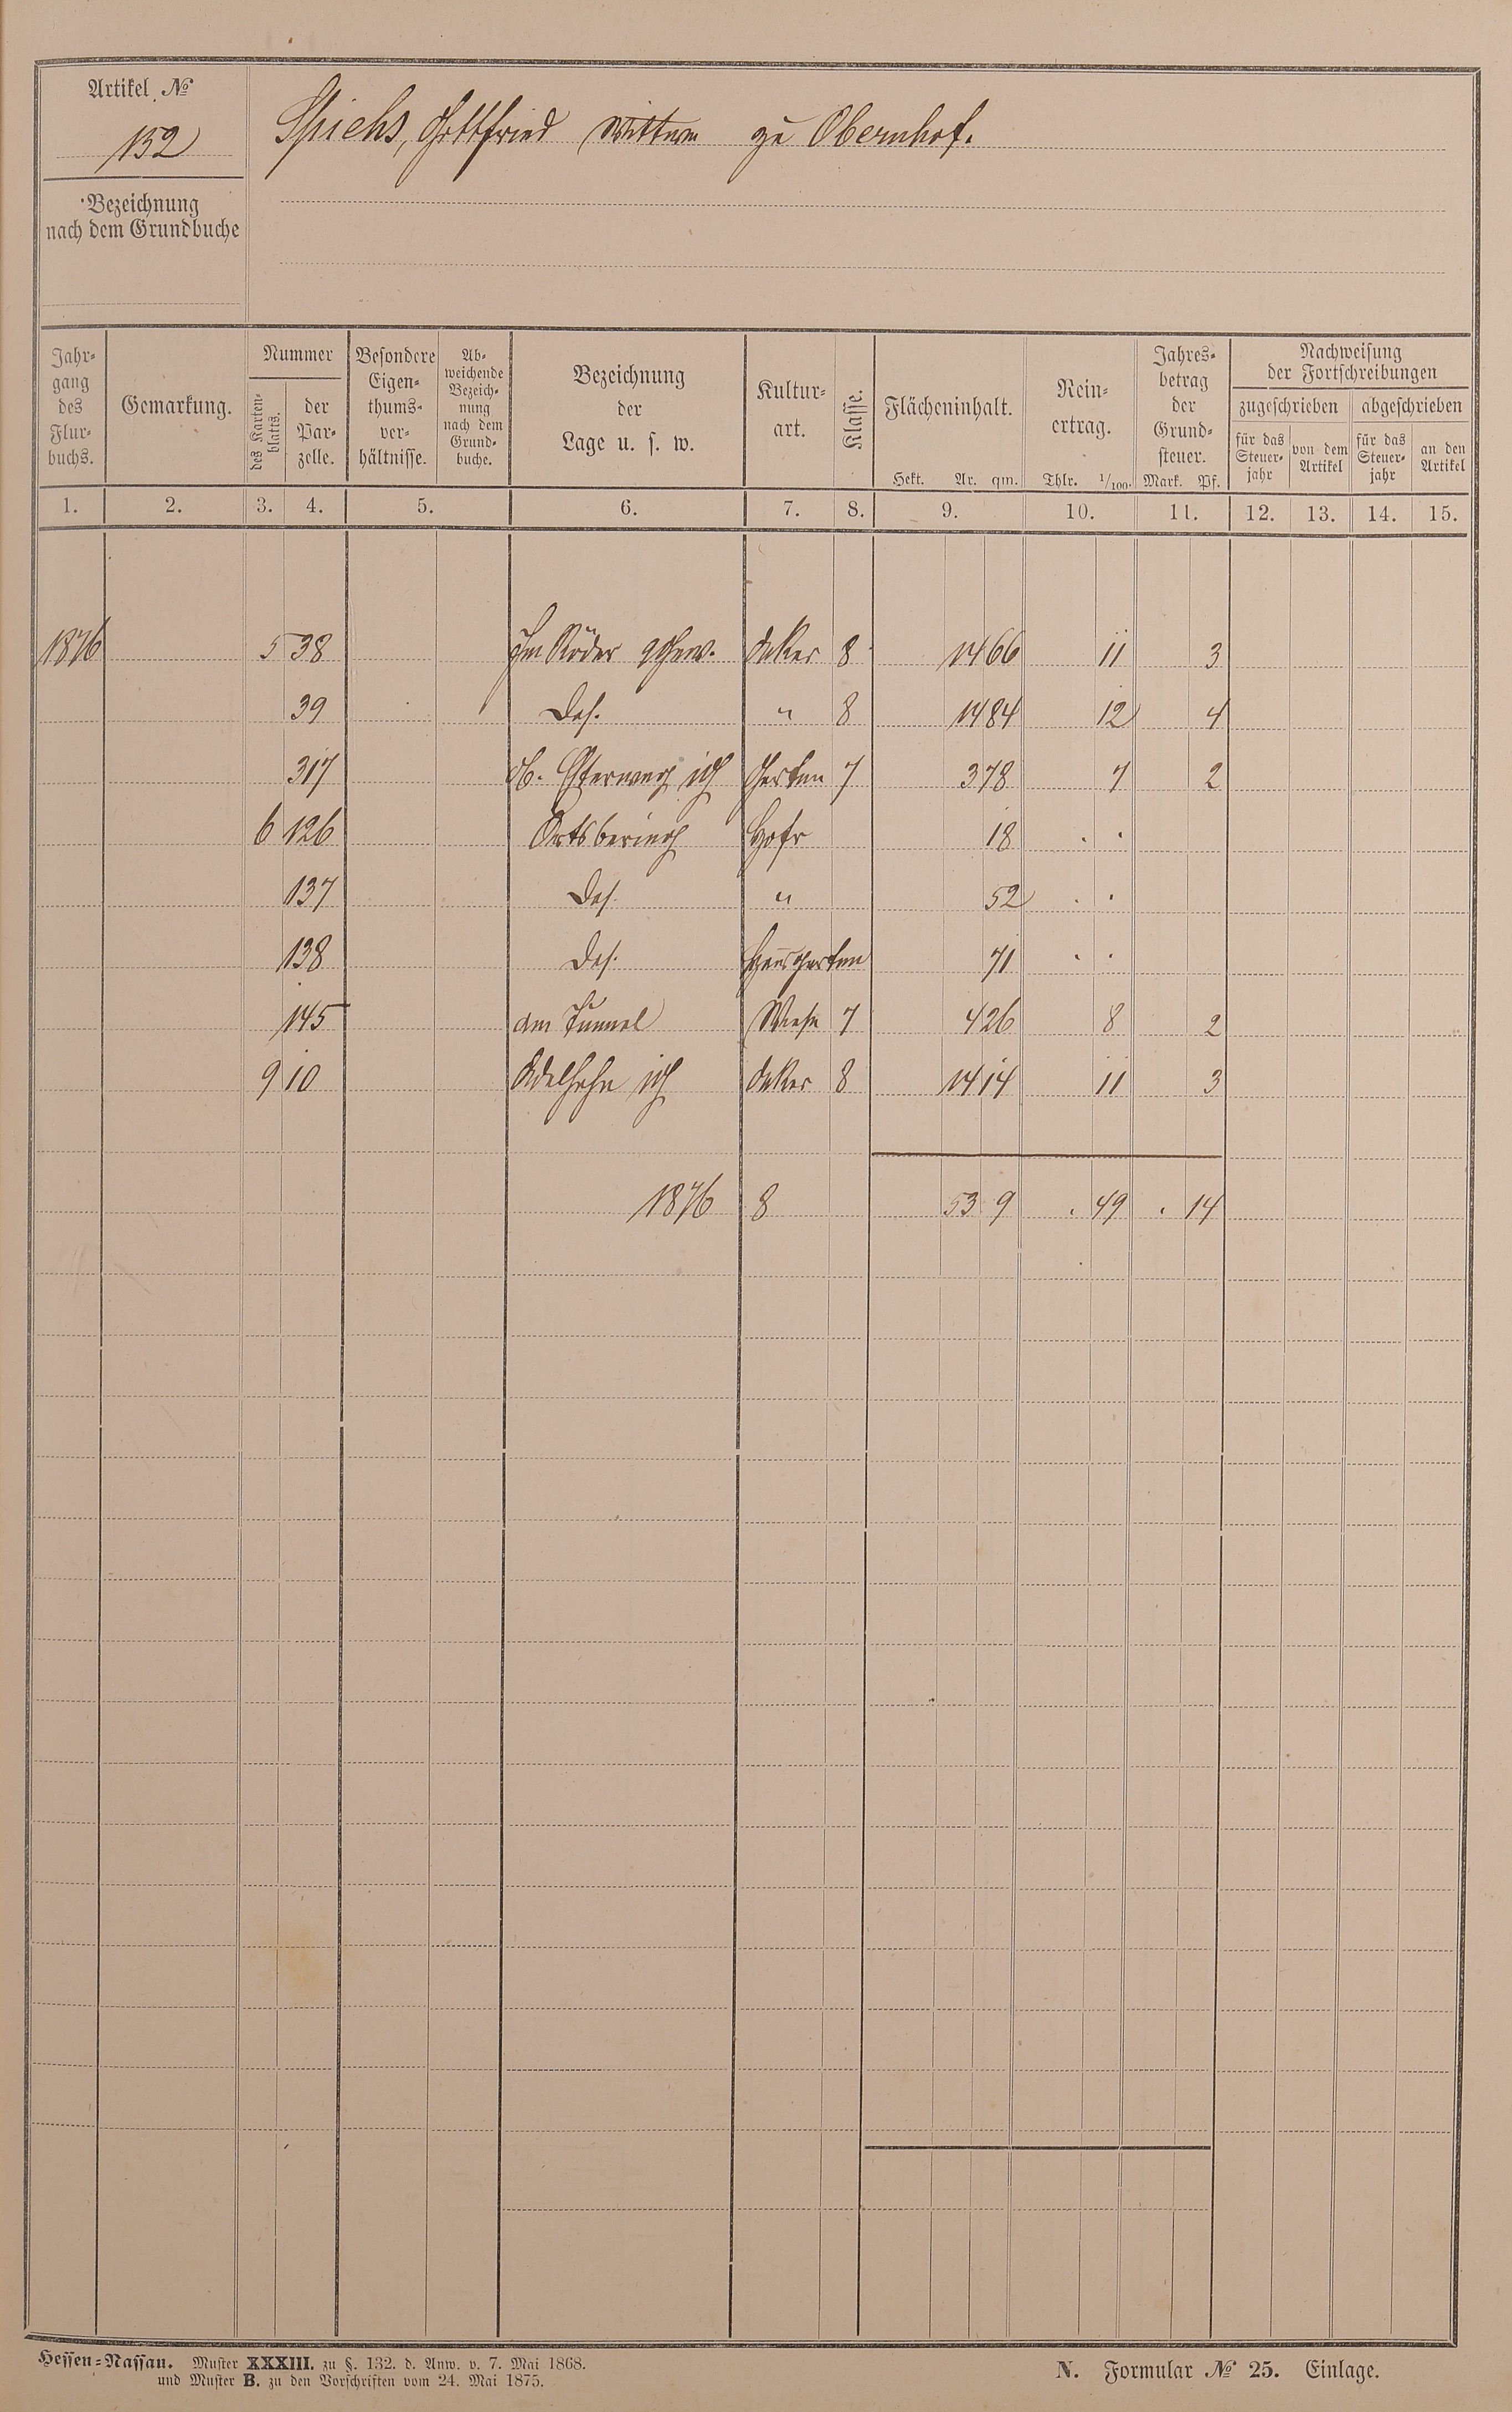 Artikel №
152
Spiehs, Gottfried Wittwe zu Obernhof.
Bezeichnung
nach dem Grundbuche
Jahr-
gang
des
Flur-
buchs.
Gemarkung.
Nummer
des Karten-
blatts.
der
Par-
zelle.
Besondere
Eigen-
thums-
ver-
hältnisse.
Ab-
weichende
Bezeich-
nung
nach dem
Grund-
buche.
Bezeichnung
der
Lage u. s. w.
Kultur-
art.
Klasse.
Flächeninhalt.
Hekt. Ar. qm.
Rein-
ertrag.
Thlr. 1/100.
Jahres-
betrag
der
Grund-
steuer.
Mark. Pf.
Nachweisung
der Fortschreibungen
zugeschrieben abgeschrieben
für das
Steuer-
jahr
von dem
Artikel
für das
Steuer-
jahr
an den
Artikel
1. 2. 3. 4. 5. 6. 7. 8. 9. 10. 11. 12. 13. 14. 15.
1876 5 38 Im Röder Acker 8 14 66 11 3
39 Das. " 8 14 84 12 4
317 Garten 7 3 78 7 2
6 126 Ortsbering Hofr 18 . .
137 Das. " 52 . .
138 Das. Hausgarten 71 . .
145 am Tunnel Wiese 7 4 26 8 2
9 10 Acker 8 14 14 11 3
1876 8 53 9 . 49 . 14
Hessen-Nassau. Muster XXXIII. zu §. 132. d. Anw. v. 7. Mai 1868.
und Muster B. zu den Vorschriften vom 24. Mai 1875.
N. Formular № 25. Einlage.